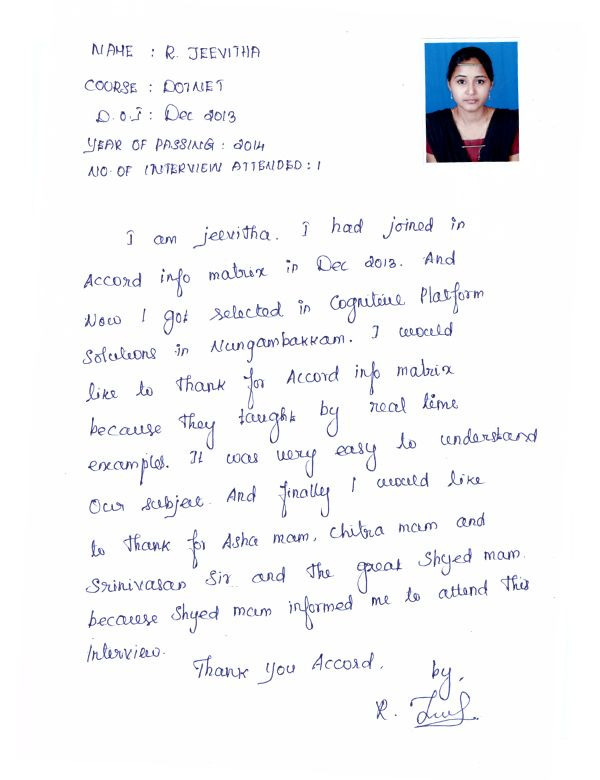 NAME : R. JEEVITHA
COURSE : DOTNET
D.O.J : Dec 2013
YEAR OF PASSING : 2014
NO. OF INTERVIEW ATTENDED : 1
I am jeevitha. I had joined in
Accord info matrix in Dec 2013. And
Now I got selected in Cognitive Platform
Solutions in Nungambakkam. I would
like to thank for Accord info matrix
because they taught by real time
examples. It was very easy to understand
Our subject. And finally I would like
to thank for Asha mam, Chitra mam and
Srinivasan Sir and the great Shyed mam.
because Shyed mam informed me to attend this
Interview.
Thank You Accord.
by,
R.